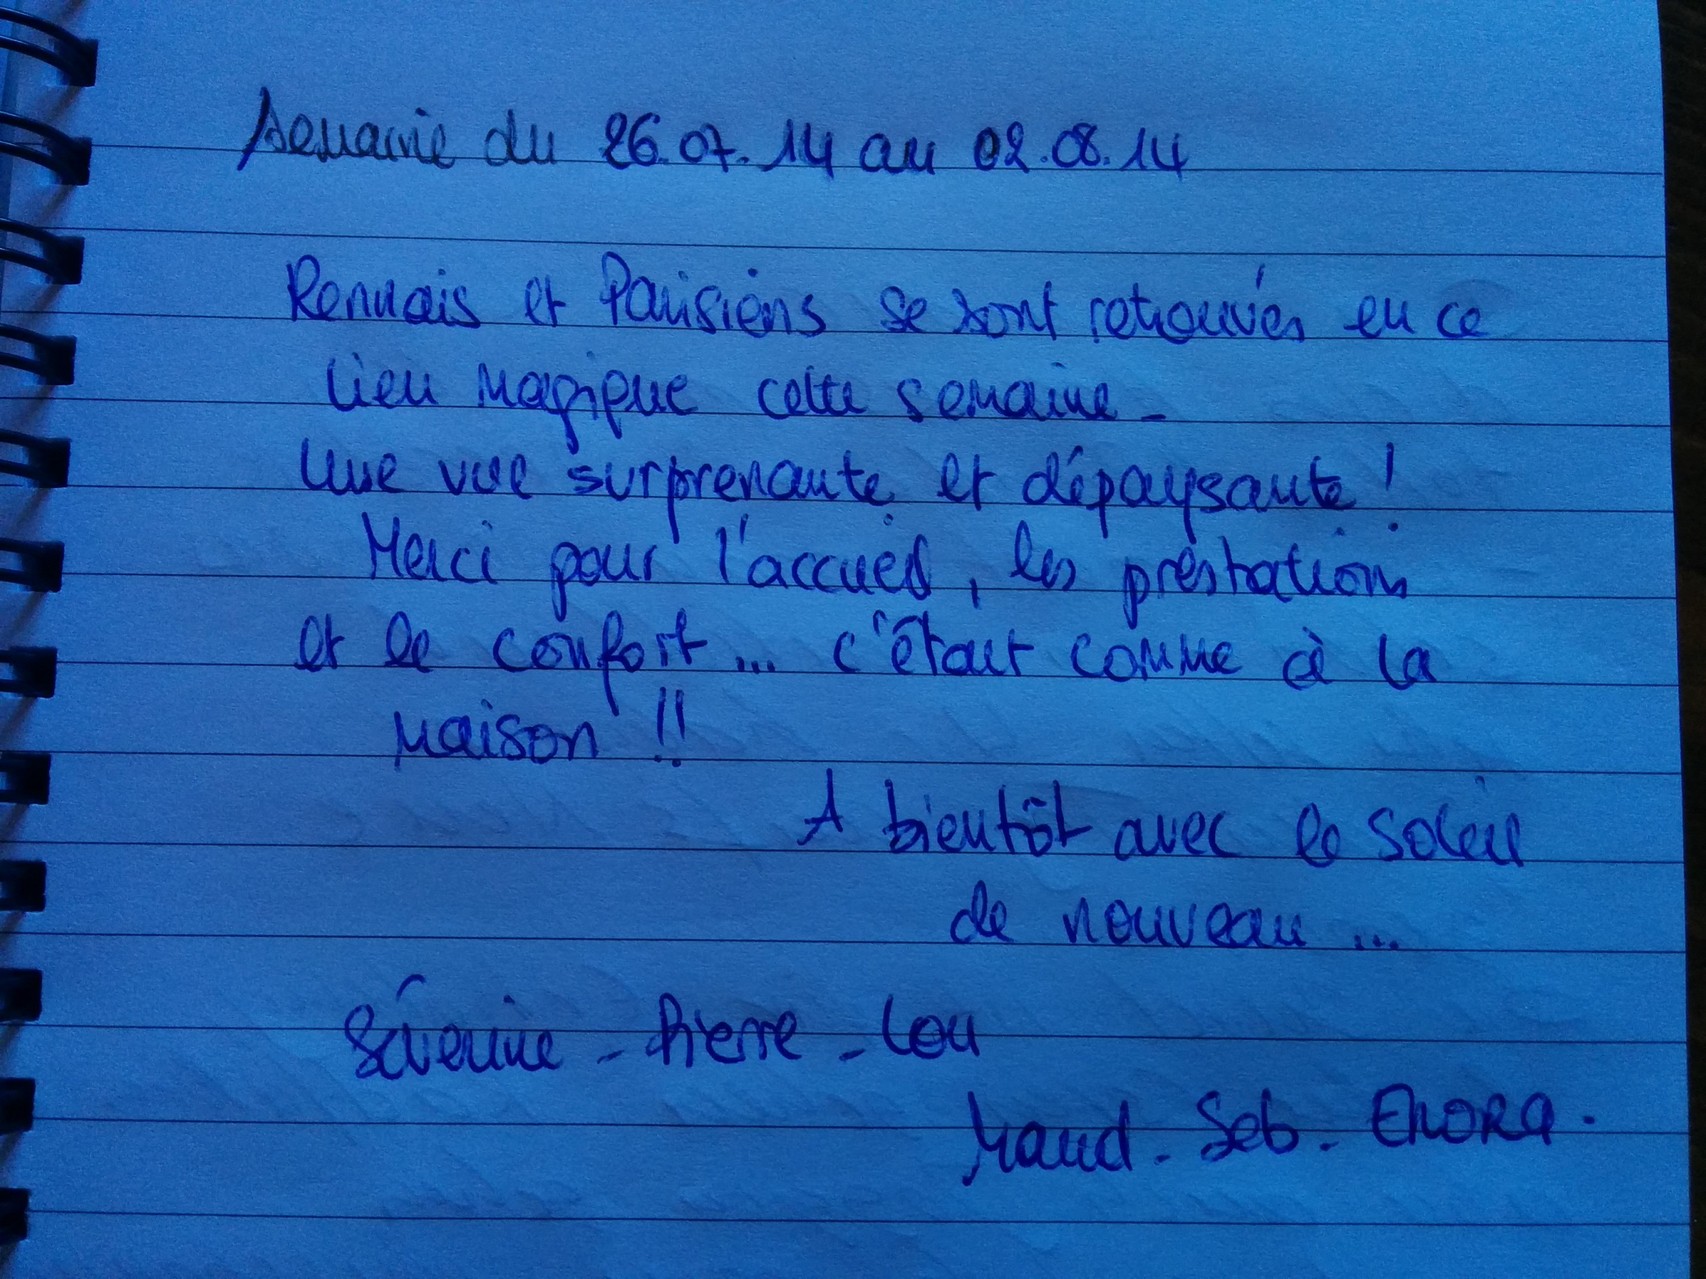 Semaine du 26.07.14 au 02.08.14
Rennais et Parisiens se sont retrouvés en ce
lieu magique cette semaine -
Une vue surprenante et dépaysante !
Merci pour l'accueil, les prestations
et le confort ... c'était comme à la
maison !!
A bientôt avec le soleil
de nouveau ...
Séverine - Pierre - Lou
Maud - Seb - ENORA.